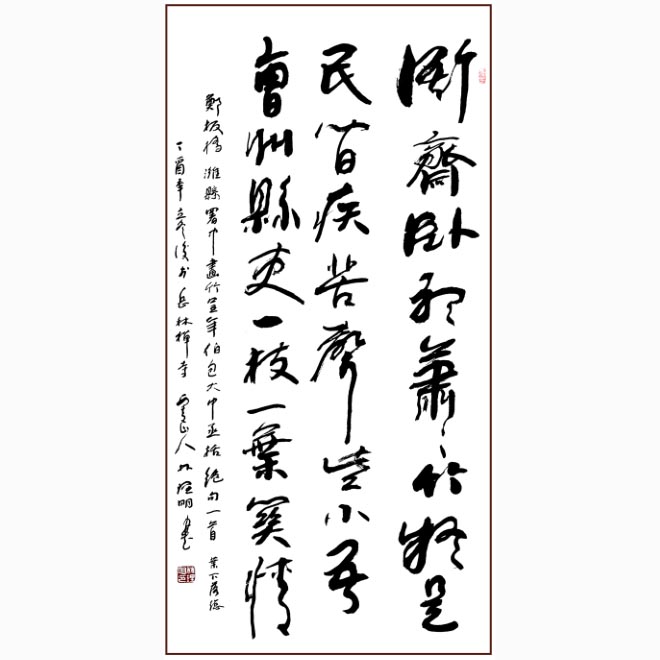 衙齋臥聽蕭〻竹疑是
民間疾苦聲些小吾
曹州縣吏一枝一葉關情
鄭板橋濰縣署中畫竹呈年伯包大中丞括絕句一首 葉下落總
丁酉年立冬後於岳林禪寺 山人 明書